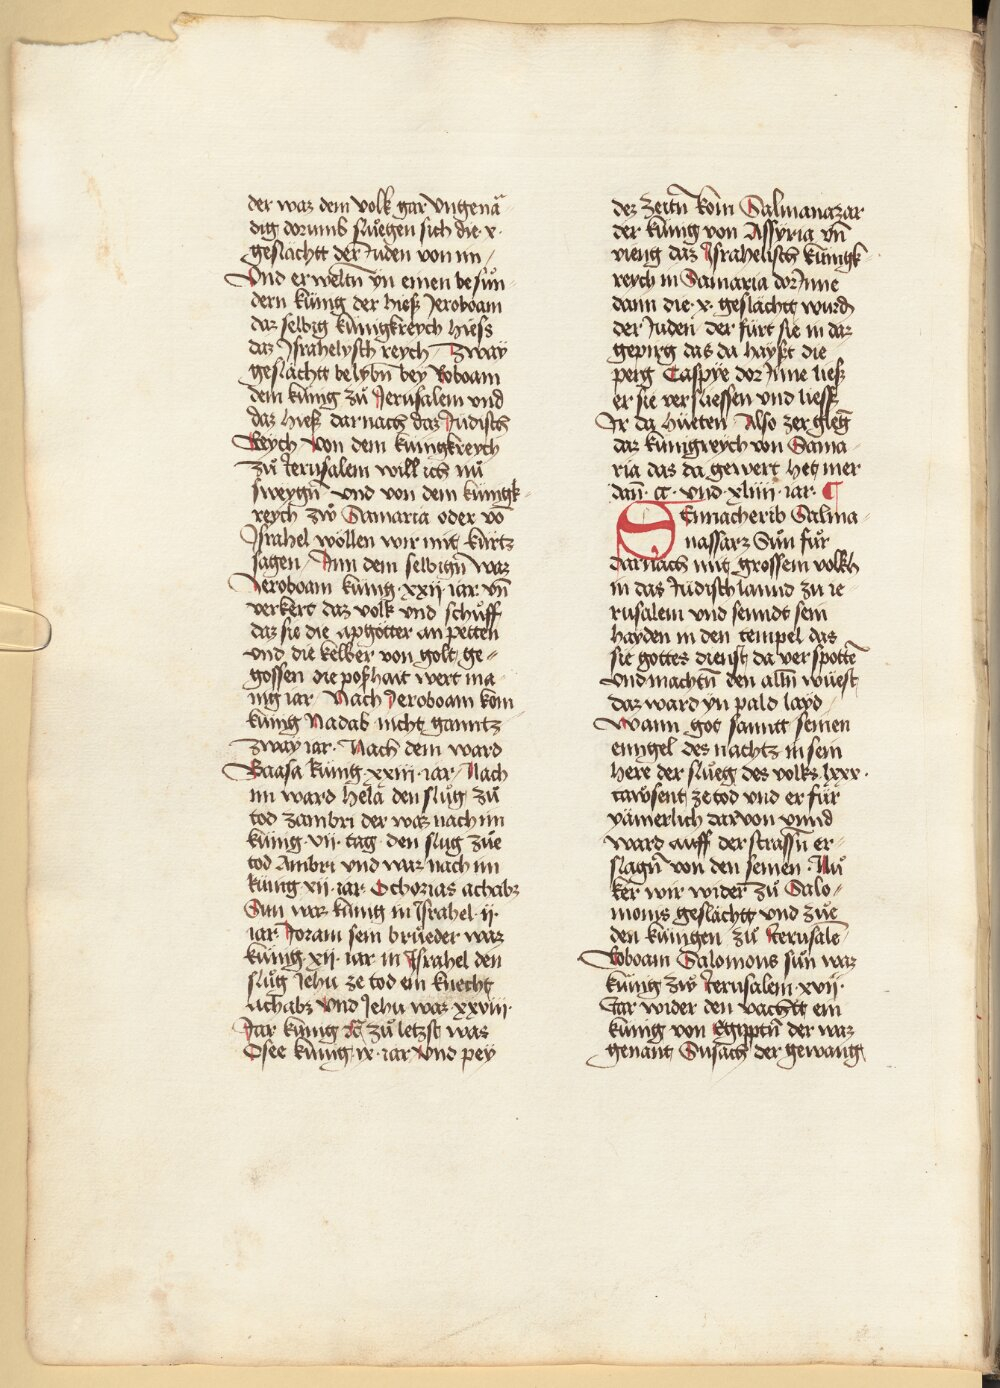 der waz dem volk gar vngenä-
dig dorumb sluegen sich die ·x·
geslächtt der Juden von im /
Vnd erweltn yn einen besun-
dern kunig der hieß Jeroboam
daz selbig kunigkreych hiess
daz Jsrahelysch reych / Zway
geslächtt belybn bey Roboam
dem kunig zu Jerusalem vnd
daz hieß darnach daz Judisch
Reych / Von dem kunigkreych
zu Jerusalem will ich nu
sweygn / vnd von dem kunigk-
reych zw Samaria oder vo
Jsrahel wollen wir mit kurtz
sagen / Jnn dem selbign waz
Jeroboam kunig ·xxij· iar· vn
verkert daz volk vnd schuff
daz sie die apgötter an petten
vnd die kelber von golt ge=
gossen die poßhait wert ma
nig iar / Nach Jeroboam kom
kunig Nadab nicht ganntz
zway iar· Nach dem ward
Baasa kunig ·xxiii· iar / Nach
im ward hela den slug zu
tod zambri der waz nach im
kunig ·vij· tag· den slug zue
tod Ambri vnd waz nach im
kunig ·xij· iar· Ochozias achabz
Sun waz kunig in Jsrahel ·ij·
iar· Joram sein brueder waz
kunig ·xij· iar in Jsrahel den
slug Jehu ze tod ein knecht
achabz Vnd Jehu waz ·xxviii·
Jar kunig zu letzst was
Osee kunig ·ix· iar vnd pey
dez zeitn kom Salmanazar
der kunig von Assyria vn
vieng daz Jsrahelisch kunigk-
reych in Samaria dor Jnne
dann die ·x· geslächtt wurdn
der Juden der furt sie in daz
gepirg das da hayßt die
perg Caspye dor Jnne ließ
er sie versliessen vnd liess
Jr da hueten / Also zergieng
daz kunigreych von Sama-
ria das da gewert het mer
dan ·cc· vnd ·xliiii· iar· ¶
Sennacherib Salma-
nassarz Sun fur
darnach mit grossem volkh
in das Judisch lannd zu ie
rusalem vnd senndt sein
hayden in den tempel das
sie gottes dienst da verspotte
vnd machtn den alln wuest
daz ward yn pald layd
Wann got sanntt seinen
enngel des nachtz in sein
here der slueg des volks ·lxxx·
tawsent ze tod vnd er fur
yämerlich darvon vnnd
ward auff der strassn er=
slagn von den seinen · Nu
ker wir wider zu Salo-
monis geslächtt vnd zue
den kunigen zu Jerusale
Roboam Salomons sun waz
kunig zw Jerusalem ·xvij·
Iar wider den vachtt ein
kunig von Egiptn der waz
genant Susach der gewang